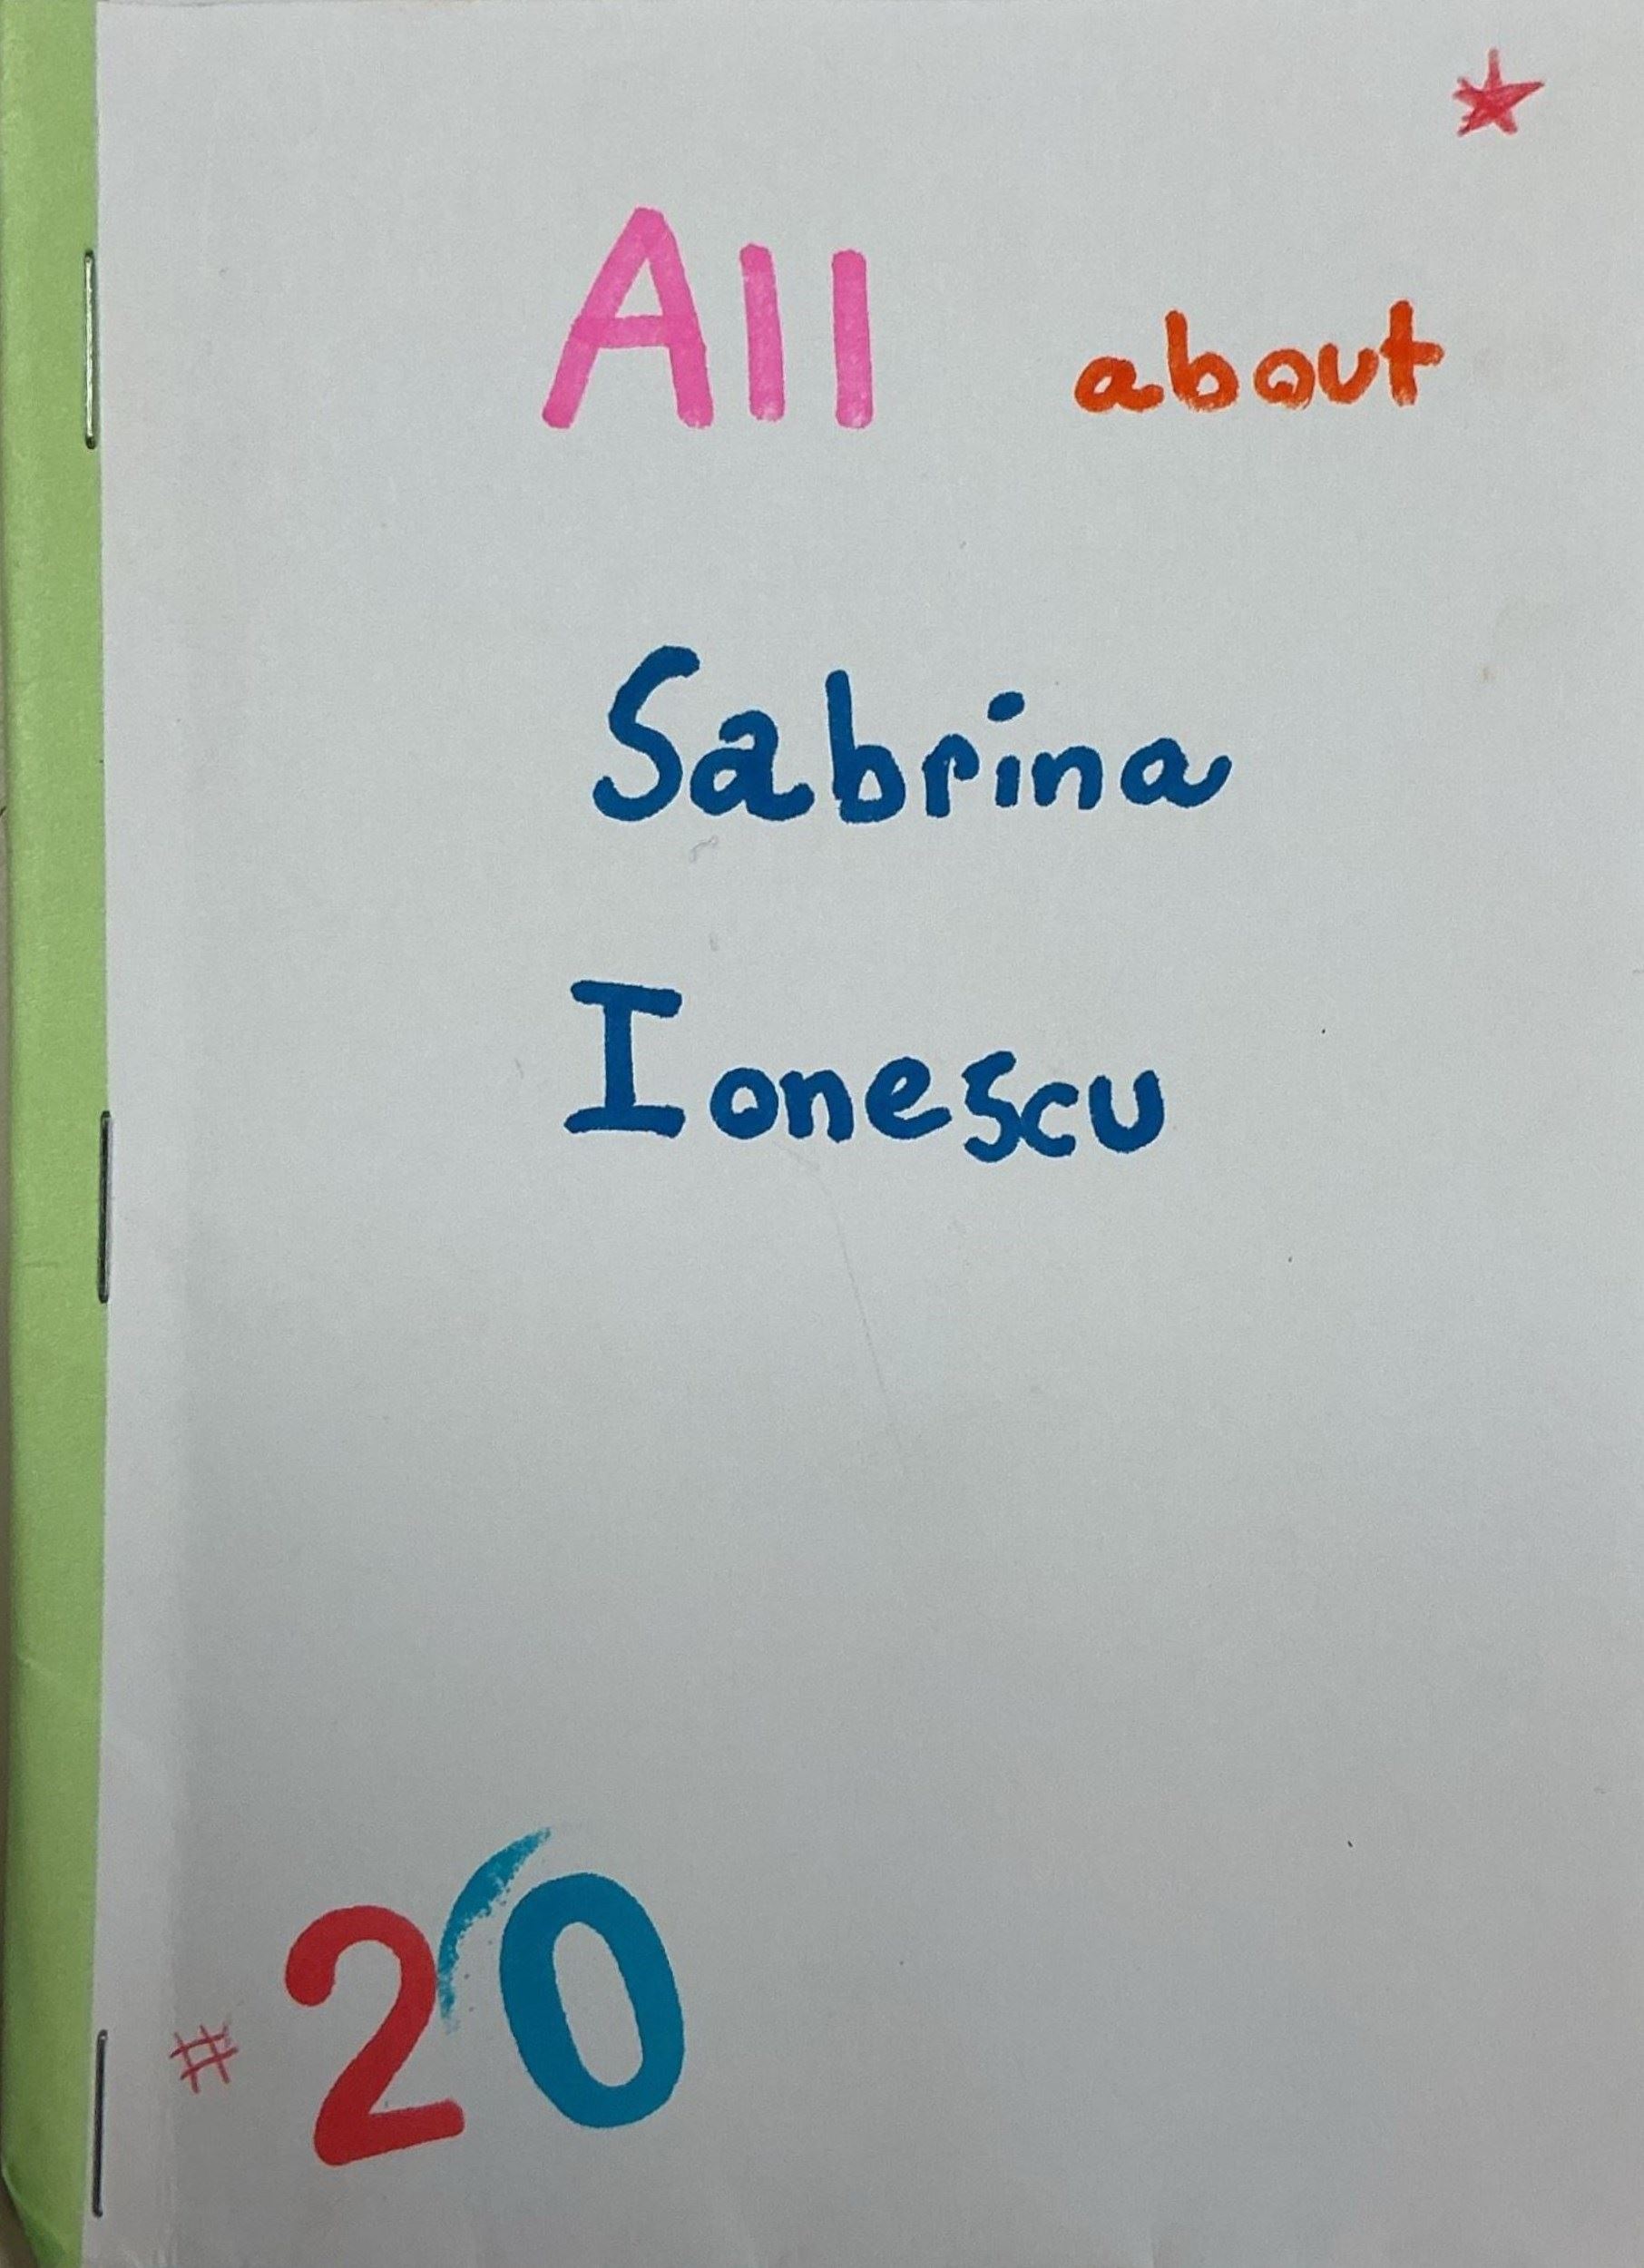 All about
Sabrina
Ionescu
#20